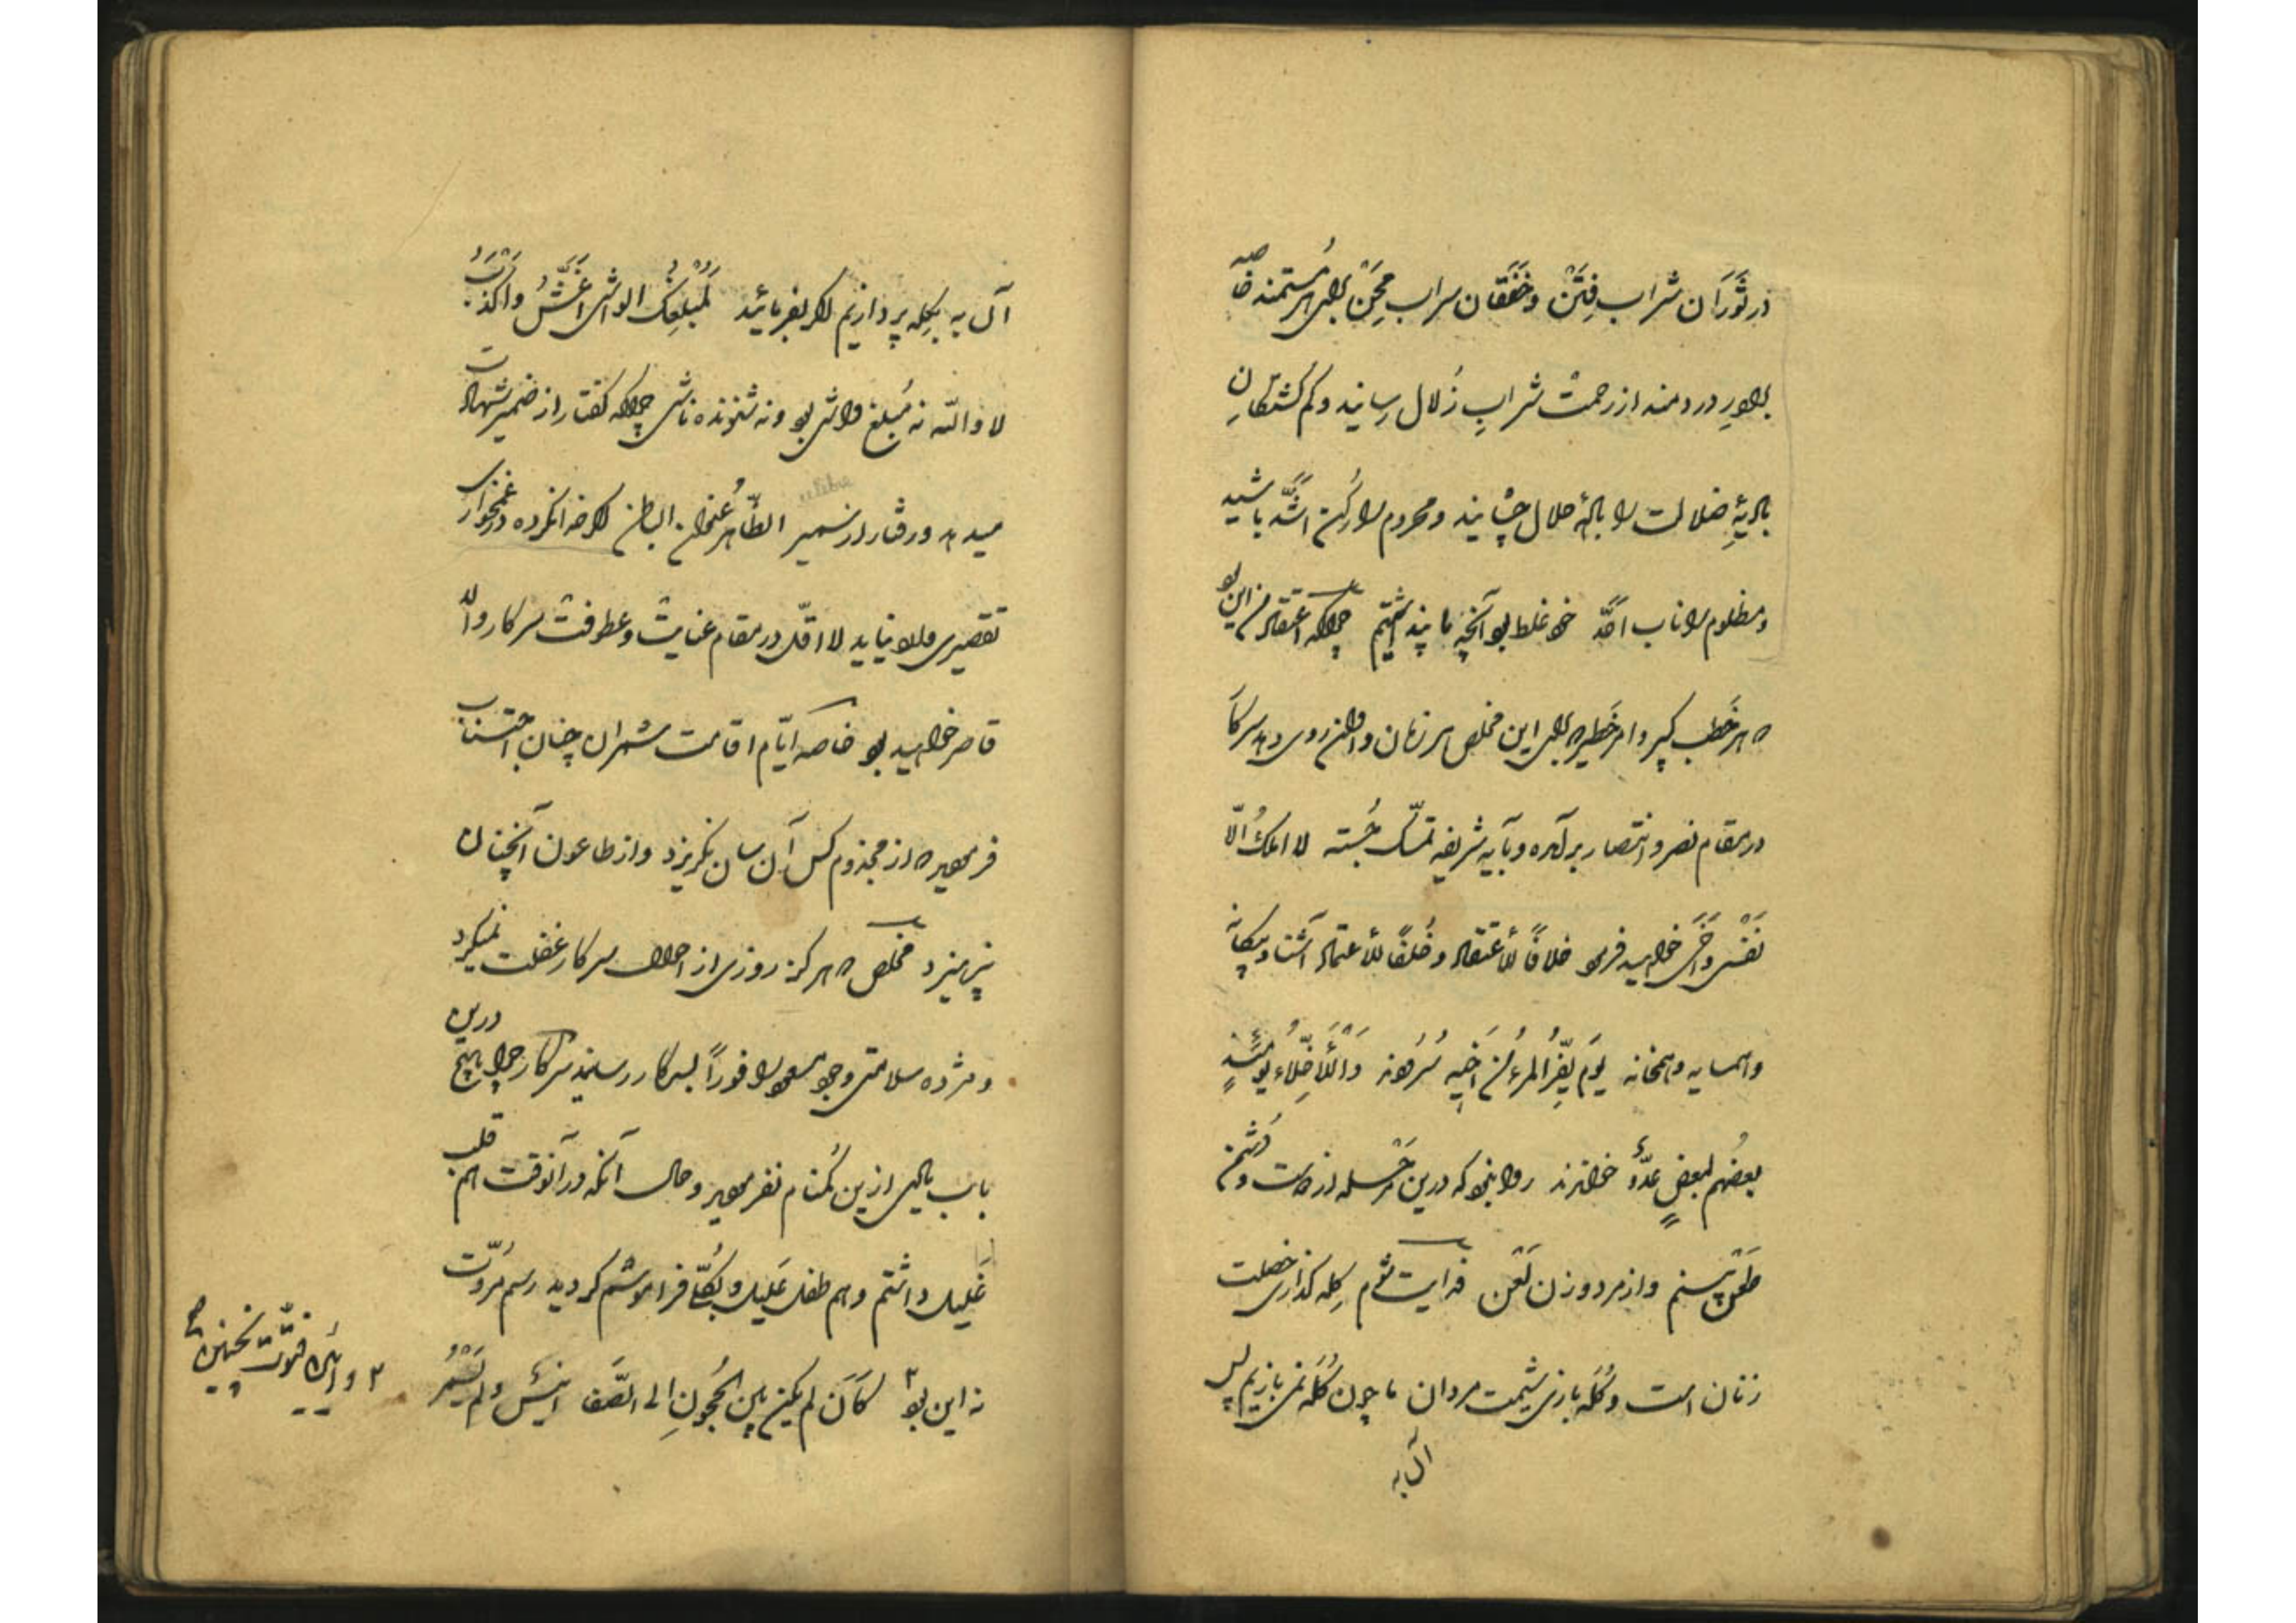 در ثوران شراب فتن و خفقان سراب محن برای هر مستمند خاصه
برادر دردمند از رحمت شراب زلال رسانید و کم گشتگان
بادیهٔ ضلالت را باده حلال چشانید و محروم را رکن اشد باشید
و مظلوم را ناب احد خود غلط بود آنچه ما پنداشتیم چراکه اعتقاد من این بود
که هر خطب کبیر و امر خطیر که برای این مخلص هر زمان و اوان روی دهد سرکار
در مقام نصر و انتصار برآمده و بآیه شریفه تمسک جسته لا املک الا
نفسی و اخی خواهید فرمود خلافا للاعتقاد و خلفا للاعتماد آشنا و بیکانه
و همسایه و همخانه یوم یفر المرء من اخیه سرودند و الاخلاء یومئذ
بعضهم لبعض عدو خواندند روا نبود که درین مرسله از دوست و دشمن
طعن پسندم و از مرد و زن لعن فدایت شوم کله کذاری خصلت
زنان است و کله بازی شیمت مردان ما چون کله نمی بازیم پس
آن به
آن به بکله پردازیم اگر بفرمائید لمبلغک الواشی اغش و اکذب
لا والله نه مبلغ واشی بود و نه شنونده ناشی چراکه کفتار از ضمیر شهادت
میدهد و رفتار از سمیر الظاهر عنوان الباطن اگر خدا نکرده در غمخواری
تقصیری وارد نیاید لا اقل در مقام عنایت و عطوفت سرکار والا
قاصر خواهید بود خاصه ایام اقامت شمران چنان اجتناب
فرمودید که از مجذوم کس آن سان نکریزد و از طاعون آنچنان
نپرهیزد مخلص که هرکز روزی از احوال سرکار غفلت نمیکرد
و مژده سلامتی وجود مسعود را فورا بسرکار رساندید سرکار چرا بهیچ
درین
باب یادی از این کمنام نفرمودید و حال آنکه در آنوقت هم قلب
غلیل داشتم و هم طفل علیل و بکلی فراموشم کردید رسم مروت
نه این بود ۲ کان لم یکن بین الحجون الی الصفا انیس و لم یسمر
۲ و آئین فتوت نچنین